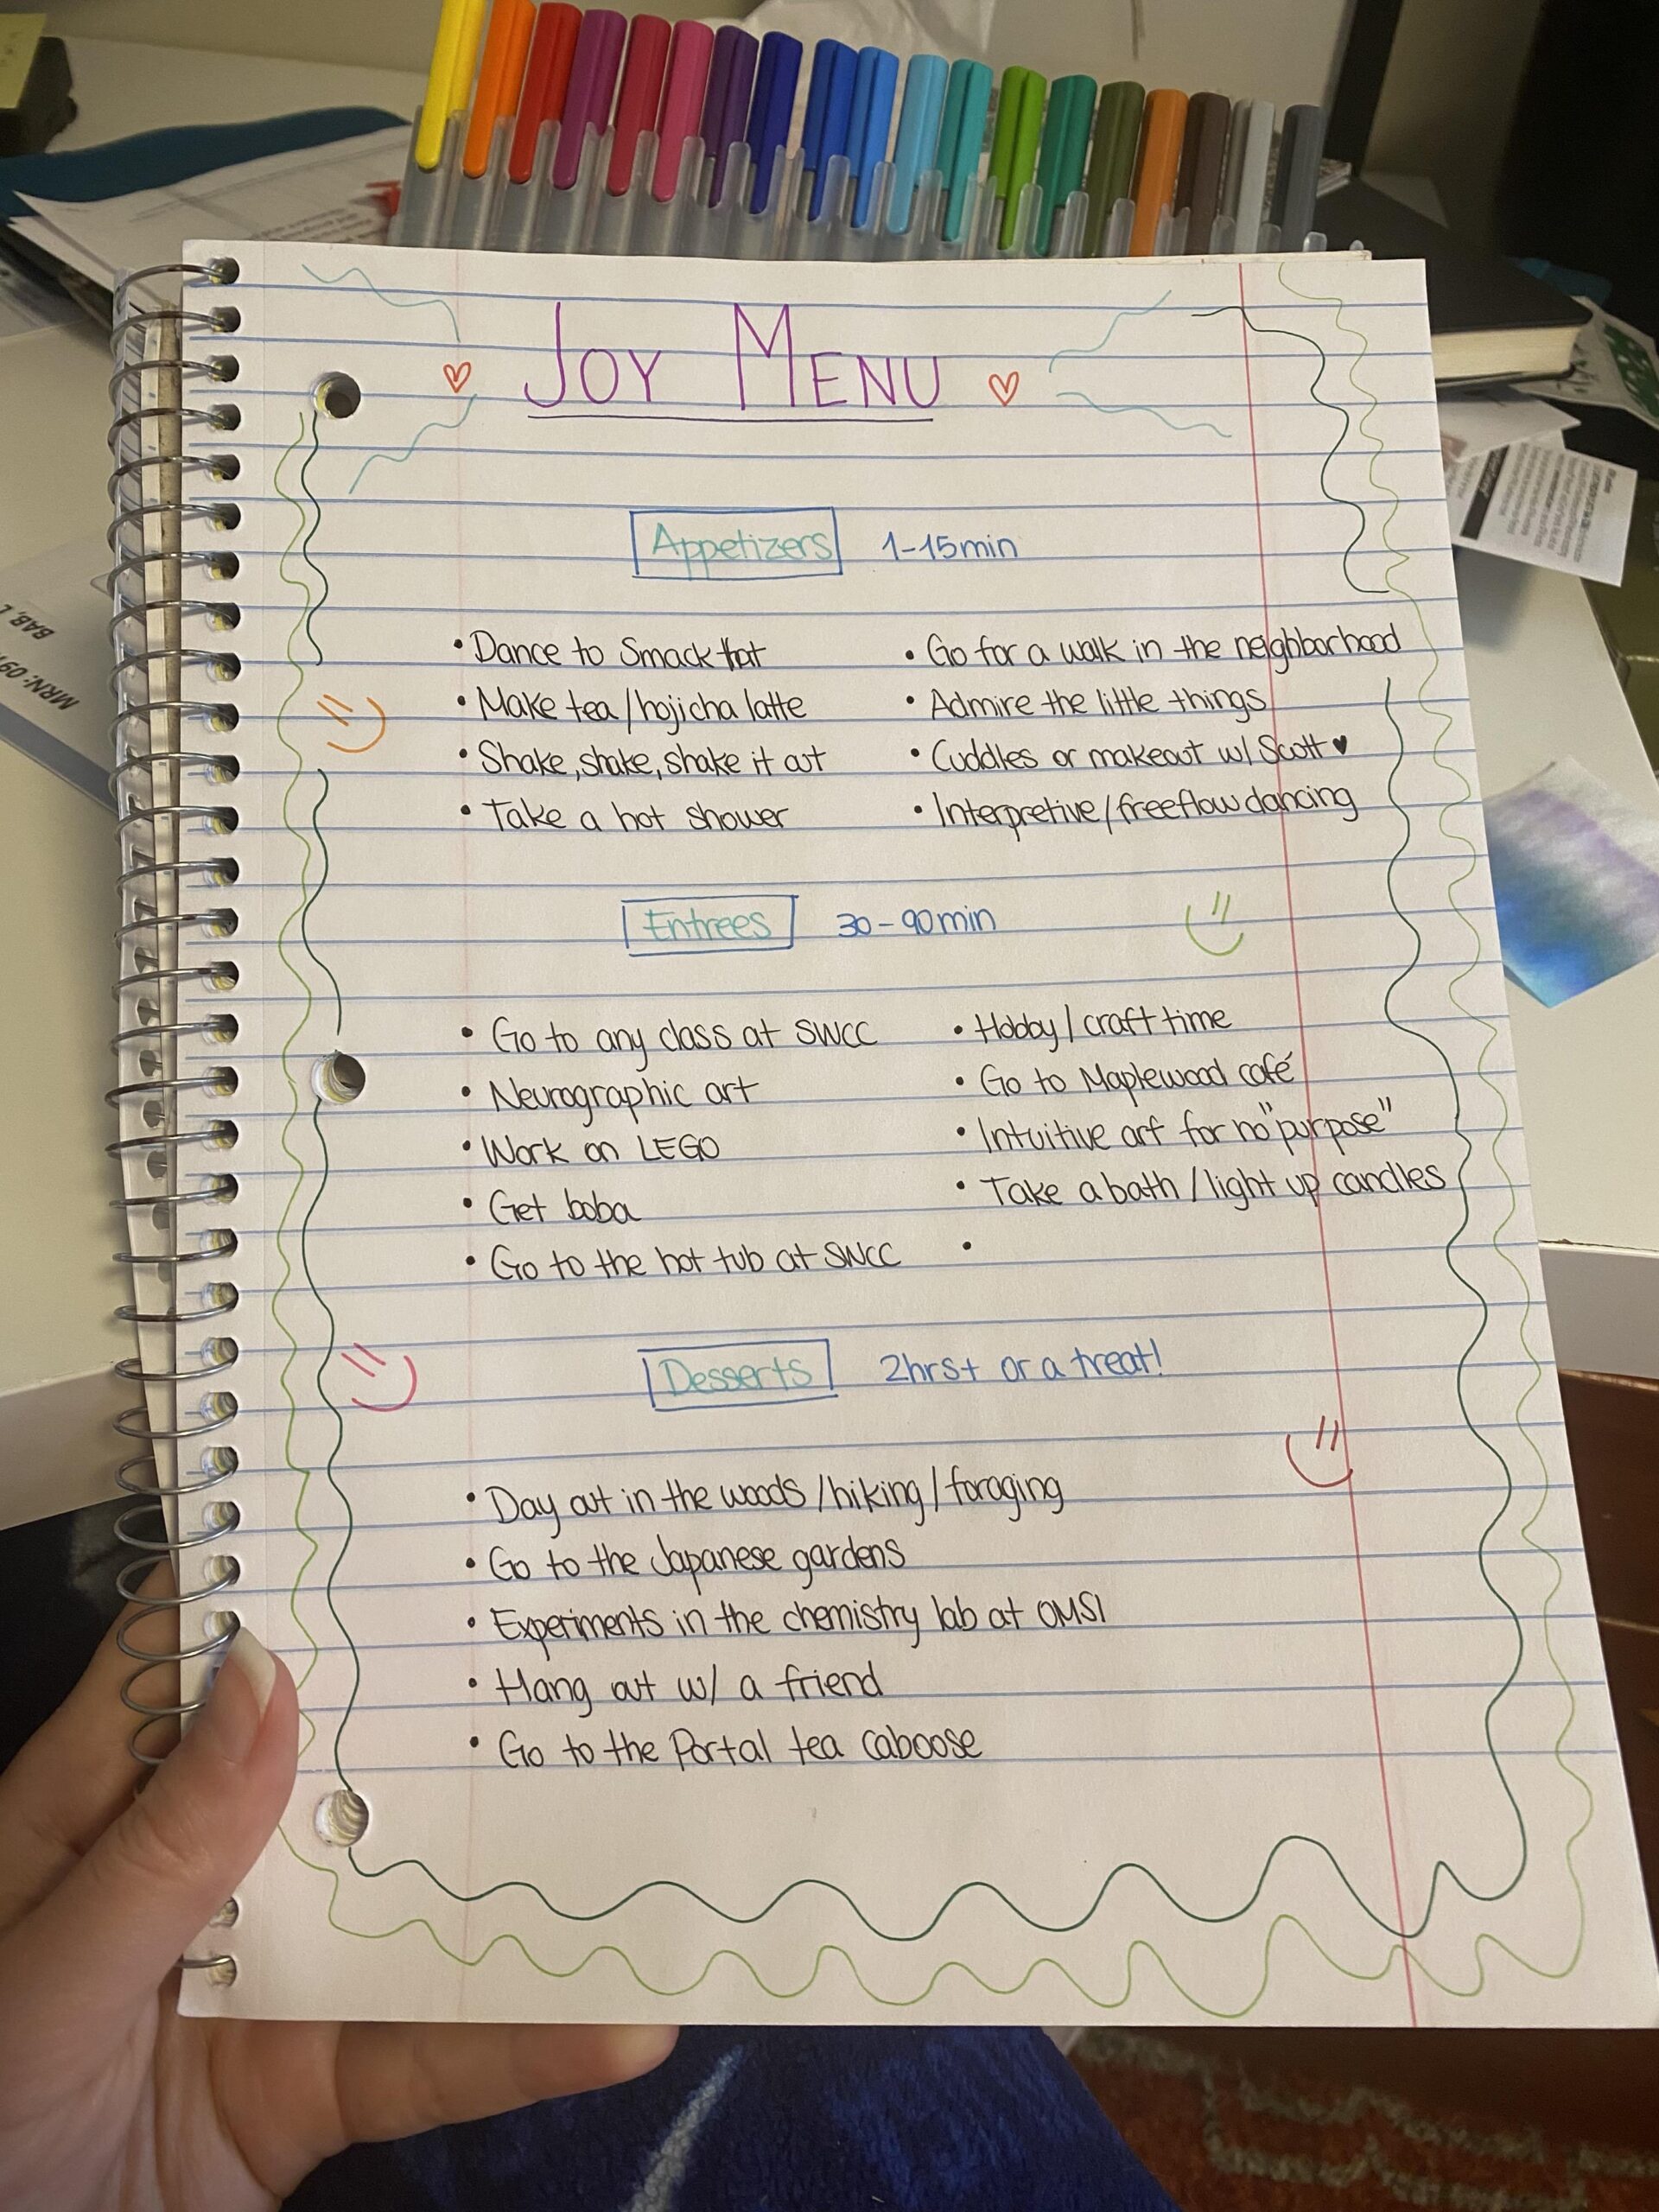 JOY MENU
Appetizers 1-15min
• Dance to Smack that
• Make tea/hojicha latte
• Shake, shake, shake it out
• Take a hot shower
• Go for a walk in the neighborhood
• Admire the little things
• Cuddles or makeout w/ Scott ♥
• Interpretive/freeflow dancing
Entrees 30-90min
• Go to any class at SWCC
• Neurographic art
• Work on LEGO
• Get boba
• Go to the hot tub at SWCC
• Hobby/craft time
• Go to Maplewood café
• Intuitive art for no "purpose"
• Take a bath/light up candles
•
Desserts 2hrs+ or a treat!
• Day out in the woods/hiking/foraging
• Go to the Japanese gardens
• Experiments in the chemistry lab at OMSI
• Hang out w/ a friend
• Go to the Portal tea caboose
BAB, L
MRN: 09